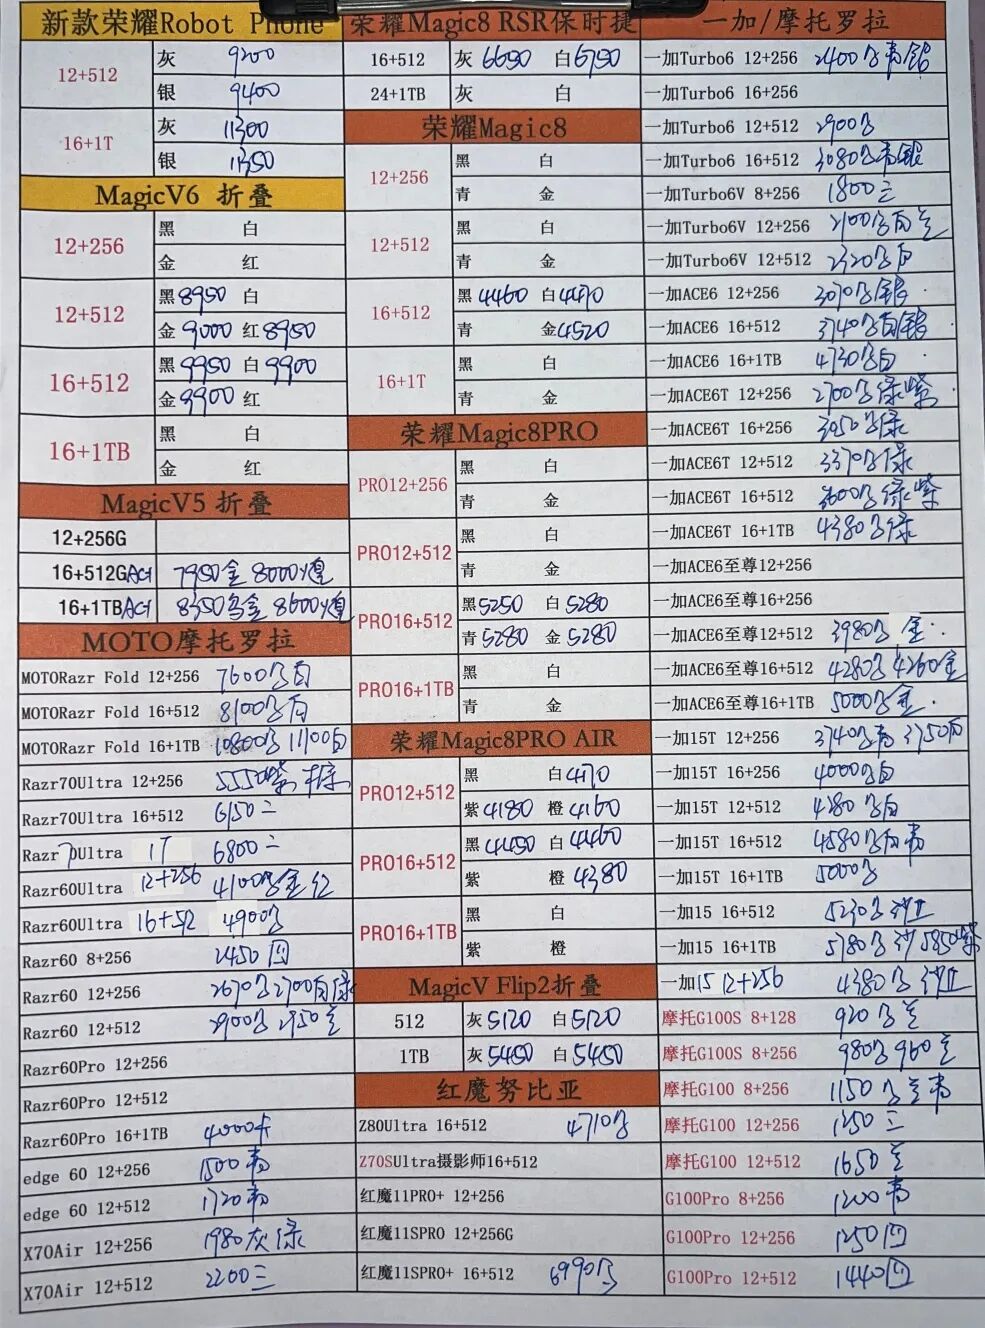 新款荣耀Robot Phone
12+512
灰 9200
银 9400
16+1T
灰 11300
银 11350
MagicV6 折叠
12+256
黑 白
金 红
12+512
黑8950 白
金9000 红8950
16+512
黑9950 白9900
金9900 红
16+1TB
黑 白
金 红
MagicV5 折叠
12+256G
16+512G 7950金 8000
16+1TB 8600
MOTO摩托罗拉
MOTORazr Fold 12+256 7600 白
MOTORazr Fold 16+512 8100 白
MOTORazr Fold 16+1TB 10800 11100白
Razr70Ultra 12+256 5550紫
Razr70Ultra 16+512 6150二
Razr7 Ultra 1T 6800二
Razr60Ultra 12+256 4100 金红
Razr60Ultra 16+512 4900
Razr60 8+256 2450四
Razr60 12+256 2670 2700白绿
Razr60 12+512 2900 2950兰
Razr60Pro 12+256
Razr60Pro 12+512
Razr60Pro 16+1TB 4000卡
edge 60 12+256 1500青
edge 60 12+512 1720青
X70Air 12+256 1980灰绿
X70Air 12+512 2200三
荣耀Magic8 RSR保时捷
16+512 灰6650 白6750
24+1TB 灰 白
荣耀Magic8
12+256
黑 白
青 金
12+512
黑 白
青 金
16+512
黑4460 白4470
青 金4520
16+1T
黑 白
青 金
荣耀Magic8PRO
PRO12+256
黑 白
青 金
PRO12+512
黑 白
青 金
PRO16+512
黑5250 白5280
青5280 金5280
PRO16+1TB
黑 白
青 金
荣耀Magic8PRO AIR
PRO12+512
黑 白4170
紫4180 橙4160
PRO16+512
黑4450 白4460
紫 橙4380
PRO16+1TB
黑 白
紫 橙
MagicV Flip2折叠
512 灰5120 白5120
1TB 灰5450 白5450
红魔努比亚
Z80Ultra 16+512 4710
Z70SUltra摄影师16+512
红魔11PRO+ 12+256
红魔11SPRO 12+256G
红魔11SPRO+ 16+512 6990
一加/摩托罗拉
一加Turbo6 12+256 2400 青银
一加Turbo6 16+256
一加Turbo6 12+512 2900
一加Turbo6 16+512 3080 青银
一加Turbo6V 8+256 1800三
一加Turbo6V 12+256 2100 白兰
一加Turbo6V 12+512 2320 白
一加ACE6 12+256 3070 银
一加ACE6 16+512 3740 白银
一加ACE6 16+1TB 4730 白
一加ACE6T 12+256 2700 绿紫
一加ACE6T 16+256 绿
一加ACE6T 12+512 3370 绿
一加ACE6T 16+512 3600 绿紫
一加ACE6T 16+1TB 4380 绿
一加ACE6至尊12+256
一加ACE6至尊16+256
一加ACE6至尊12+512 3980 金
一加ACE6至尊16+512 4280 4260金
一加ACE6至尊16+1TB 5000 金
一加15T 12+256 3740 青 3750白
一加15T 16+256 4000 白
一加15T 12+512 4280 白
一加15T 16+512 4580 白青
一加15T 16+1TB 5000
一加15 16+512 5230
一加15 16+1TB 5780 沙 5850紫
一加15 12+256 4380
摩托G100S 8+128 920 兰
摩托G100S 8+256 980 960兰
摩托G100 8+256 1150 兰青
摩托G100 12+256 1250三
摩托G100 12+512 1650兰
G100Pro 8+256 1200青
G100Pro 12+256 1250四
G100Pro 12+512 1440四